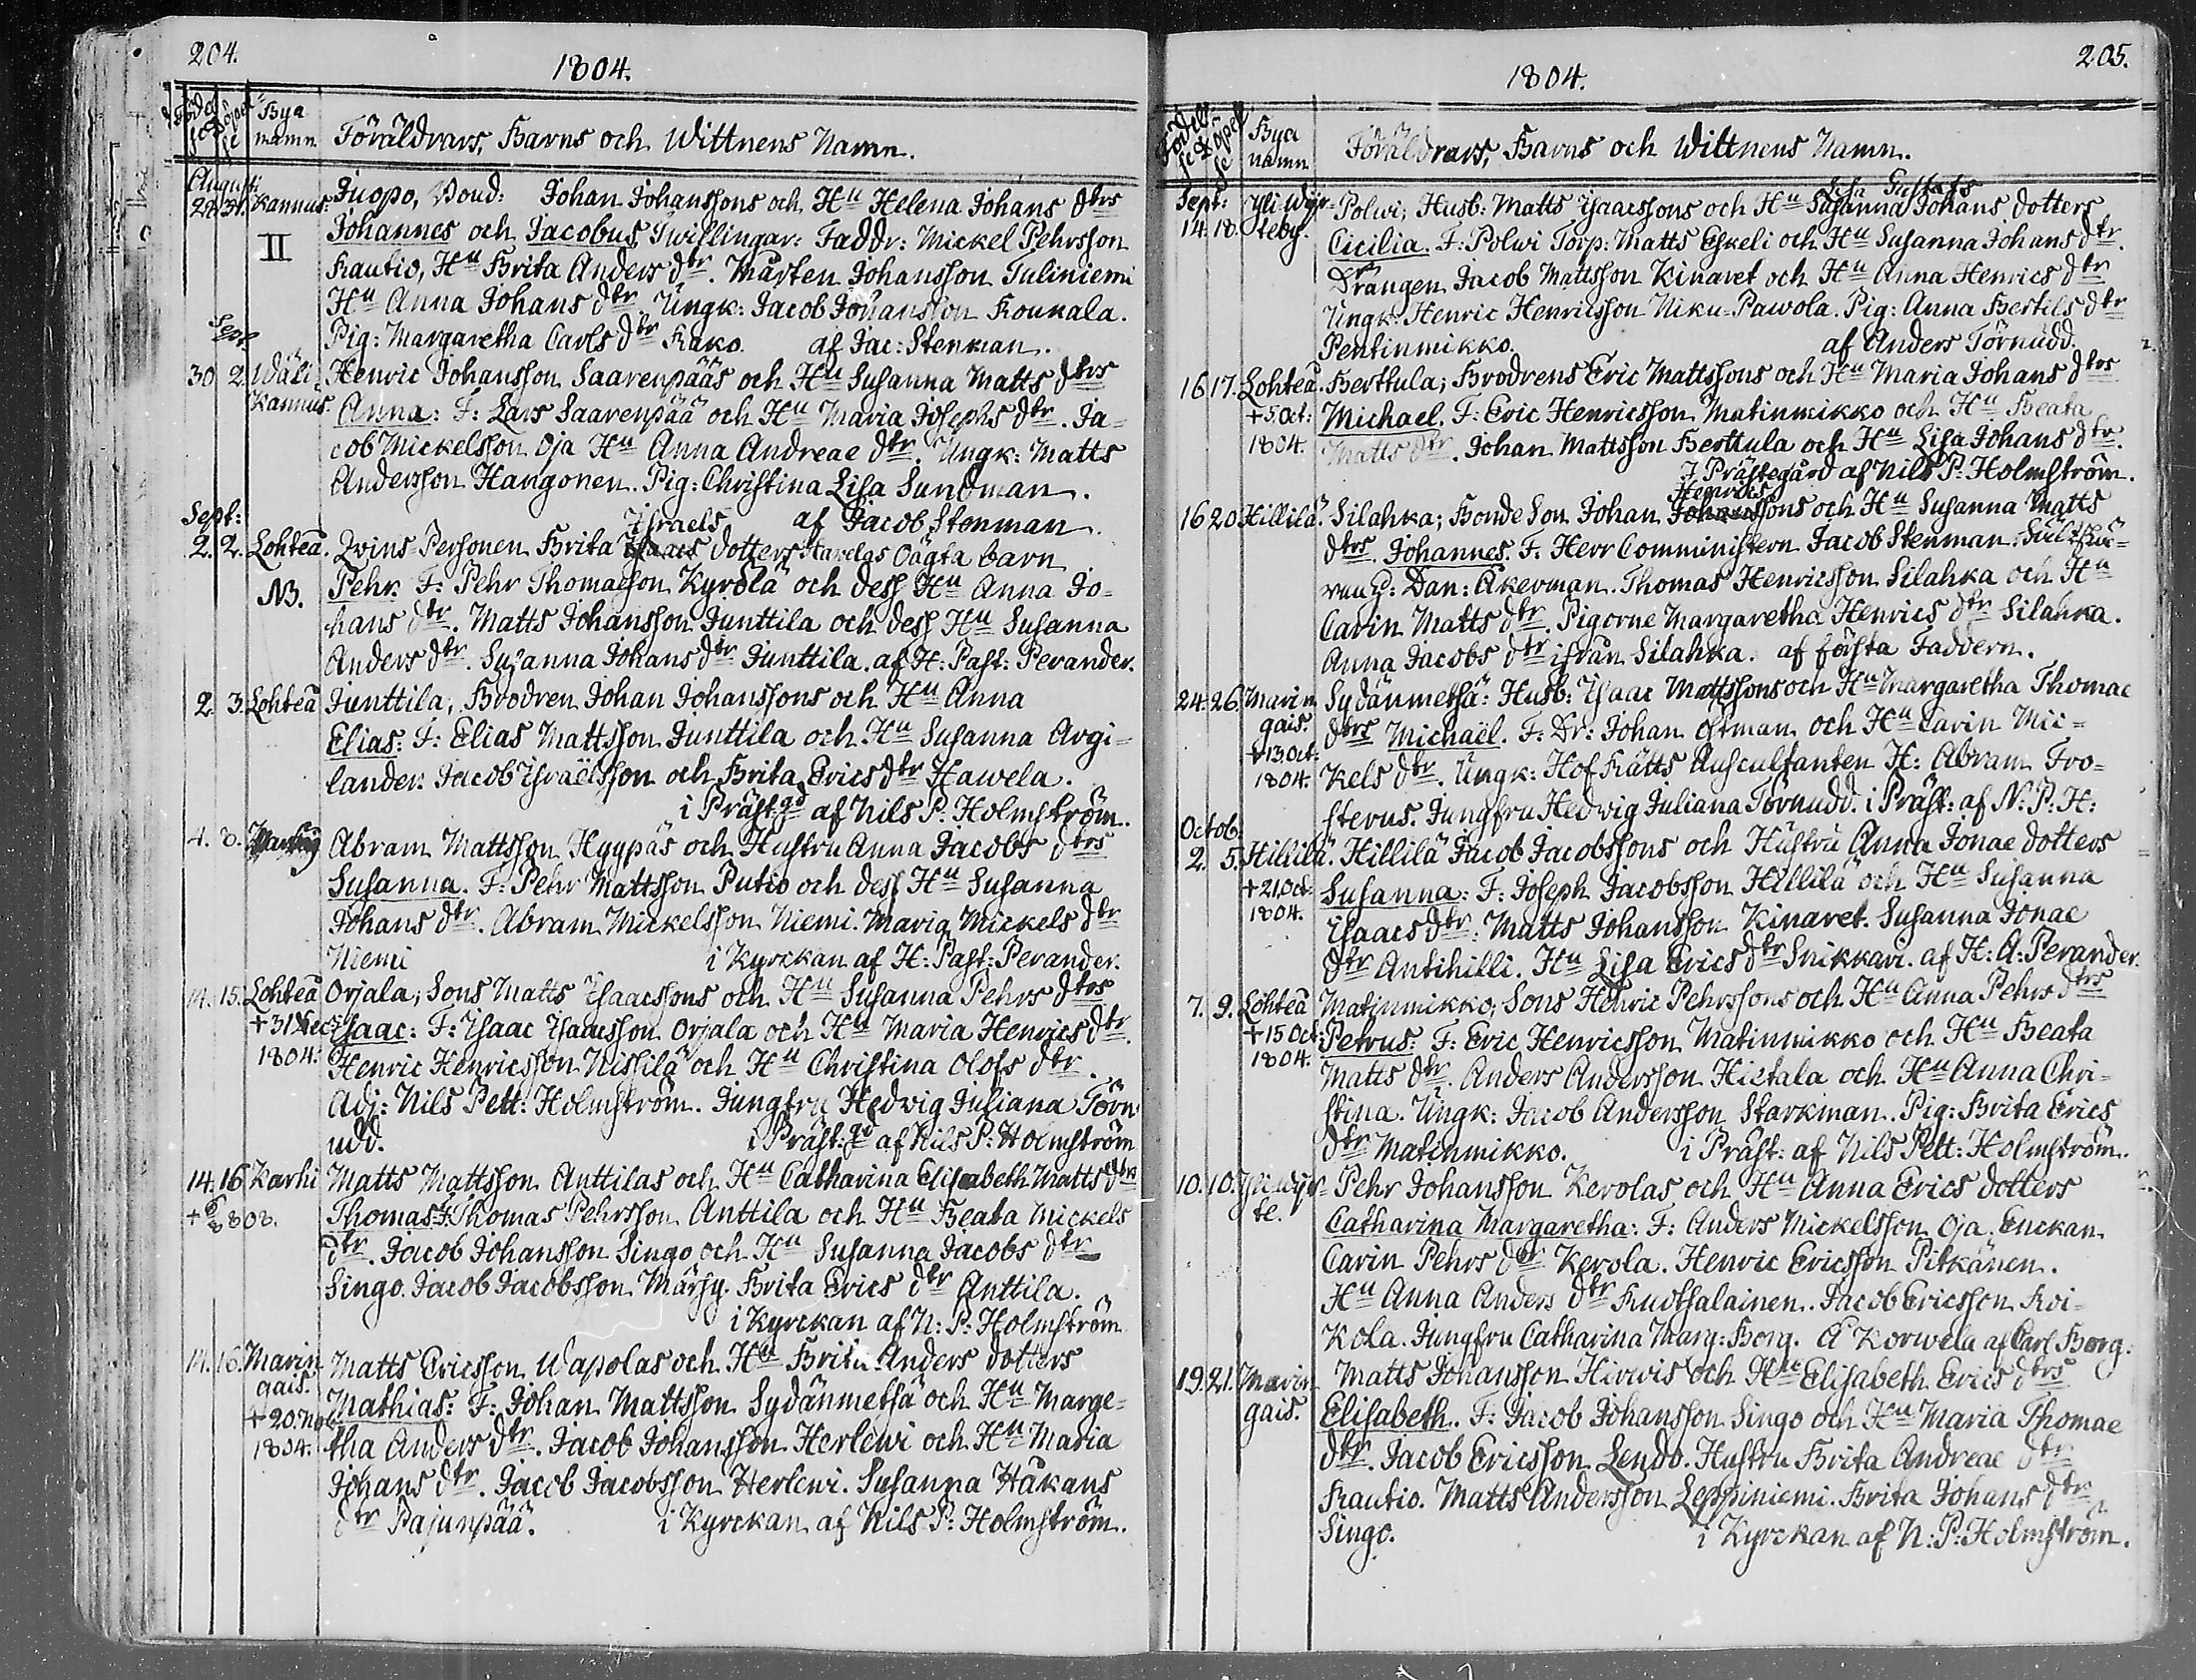 204.
1804.
Födel
se Döpel
se
Bya
namn
Föräldrars, Barns och Wittnens Namn.
Augusti
29. 31. Kannus: Juopo, Bond: Johan Johanssons och Hu Helena Johans dtrs
II Johannes och Jacobus, Twillingar: Faddr: Mickel Pehrsson
Rautio, Hu Brita Anders dtr. Mårten Johansson Tuliniemi
Hu Anna Johans dtr. Ungk: Jacob Johansson Roukala.
Sept. Pig: Margaretha Carls dtr Kako. af Jac: Stenman.
30 2. Wäli- Henric Johansson Saarenpääs och Hu Susanna Matts dtrs
Kannus. Anna: F: Lars Saarenpää och Hu Maria Josephs dtr. Ja-
cob Mickelsson Oja Hu Anna Andreae dtr. Ungk: Matts
Andersson Hangonen. Pig: Christina Lisa Sundman.
Sept: Israels af Jacob Stenman.
2. 2. Lohteå. Qvins-Personen Brita Isaacs dotters Oägta barn
NB. Pehr. F: Pehr Thomasson Kyrölä och dess Hu Anna Jo-
hans dtr. Matts Johansson Junttila och dess Hu Susanna
Anders dtr. Susanna Johans dtr Junttila. af H: Past: Perander.
2. 3. Lohteå Junttila, Brodren Johan Johanssons och Hu Anna
Elias: F: Elias Mattsson Junttila och Hu Susanna Argi-
lander. Jacob Israëlsson och Brita Erics dtr Hawela.
i Präst:gd af Nils P: Holmström.
4. 8. Abram Mattsson Hyypäs och Hustru Anna Jacobs dtrs
Susanna. F: Pehr Mattsson Putio och dess Hu Susanna
Johans dtr. Abram Mickelsson Niemi. Maria Mickels dtr
Niemi i Kyrckan af H: Past: Perander.
14. 15. Lohteå Orjala, Sons Matts Isaacssons och Hu Susanna Pehrs dtrs
+ 31 Dec: Isaac: F: Isaac Isaacsson Orjala och Hu Maria Henrics dtr.
1804. Henric Henricsson Nissilä och Hu Christina Olofs dtr.
Adj: Nils Pett: Holmström. Jungfru Hedvig Juliana Törn
udd. i Präst:gd af Nils P: Holmström
14. 16 Karhi Matts Mattsson Anttilas och Hu Catharina Elisabeth Matts dtrs
+ 6/8 808. Thomas: F: Thomas Pehrsson Anttila och Hu Beata Mickels
dtr. Jacob Johansson Singo och Hu Susanna Jacobs dtr
Singo. Jacob Jacobsson Märsy. Brita Erics dtr Anttila.
i Kyrckan af N: P: Holmström
14. 16. Marin Matts Ericsson Wapolas och Hu Brita Anders dotters
gais. Mathias: F: Johan Mattsson Sydänmetsä och Hu Marge-
+ 20. Nob tha Anders dtr. Jacob Johansson Herlewi och Hu Maria
1804. Johans dtr. Jacob Jacobsson Herlewi. Susanna Håkans
dtr Pajunpää. i Kyrckan af Nils P: Holmström.
205.
1804.
Födel
se Döpel
se
Bya
namn
Föräldrars, Barns och Wittnens Namn.
Lisa Gustafs
Sept: Yliwijr- Polwi; Husb: Matts Isaacssons och Hu Susanna Johans dotters
14. 18. teby. Cicilia. F: Polwi Torp: Matts Eskeli och Hu Susanna Johans dtr.
Drängen Jacob Mattsson Kinaret och Hu Anna Henrics dtr
Ungk: Henric Henricsson Niku-Pawola. Pig: Anna Bertils dtr
Pentinmikko. af Anders Törnudd.
16 17. Lohteå. Berttula; Brodrens Eric Mattssons och Hu Maria Johans dtrs
+ 5 Oct: Michael. F: Eric Henricsson Matinmikko och Hu Beata
1804. Matts dtr. Johan Mattsson Berttula och Hu Lisa Johans dtr.
J Prästegård af Nils P: Holmström.
Henrics
16 20. Hillilä. Silahka; Bonde Son Johan Johanssons och Hu Susanna Matts
dtrs. Johannes. F. Herr Comministern Jacob Stenman.
Dan: Åkerman. Thomas Henricsson Silahka och Hu
Carin Matts dtr. Pigorne Margaretha Henrics dtr Silahka.
Anna Jacobs dtr ifrån Silahka. af första Faddern.
24. 26. Marin Sydänmetsä: Husb: Isaac Mattssons och Hu Margaretha Thomae
gais. dtrs Michaël. F: Dr: Johan Östman och Hu Carin Mic-
+ 13. Oct: kels dtr. Ungk: Hof Rätts Auscultanten H: Abram Fro-
1804. sterus. Jungfru Hedwig Juliana Törnudd. i Präst: af N: P: H:
Octob:
2. 5. Hillilä. Hillilä Jacob Jacobssons och Hustru Anna Jonae dotters
+ 21. Oct: Susanna: F: Joseph Jacobsson Hillilä och Hu Susanna
1804. Isaacs dtr. Matts Johansson Kinaret. Susanna Jonae
dtr Antihilli. Hu Lisa Erics dtr Snikkari. af H: A: Perander.
7. 9. Lohteå Matinmikko; Sons Henric Pehrssons och Hu Anna Pehrs dtrs
+ 15 Oct: Petrus: F: Eric Henricsson Matinmikko och Hu Beata
1804. Matts dtr. Anders Andersson Hietala och Hu Anna Chri-
stina. Ungk: Jacob Andersson Starkman. Pig: Brita Erics
dtr Matinmikko. i Präst: af Nils Pett: Holmström.
10. 10. Yliwijr- Pehr Johansson Kerolas och Hu Anna Erics dotters
te. Catharina Margaretha: F: Anders Mickelsson Oja. Enckan
Carin Pehrs dtr Kerola. Henric Ericsson Pitkänen.
Hu Anna Anders dtr Ruotsalainen. Jacob Ericsson Koi-
kola. Jungfru Catharina Marg: Borg. Å Korwela af Carl Borg.
19. 21. Marin Matts Johansson Hirwis och Hu Elisabeth Erics dtrs
gais. Elisabeth. F: Jacob Johansson Singo och Hu Maria Thomae
dtr. Jacob Ericsson Lendo. Hustru Brita Andreae dtr
Rautio. Matts Andersson Leppiniemi. Brita Johans dtr
Singo. i Kyrckan af N: P: Holmström.